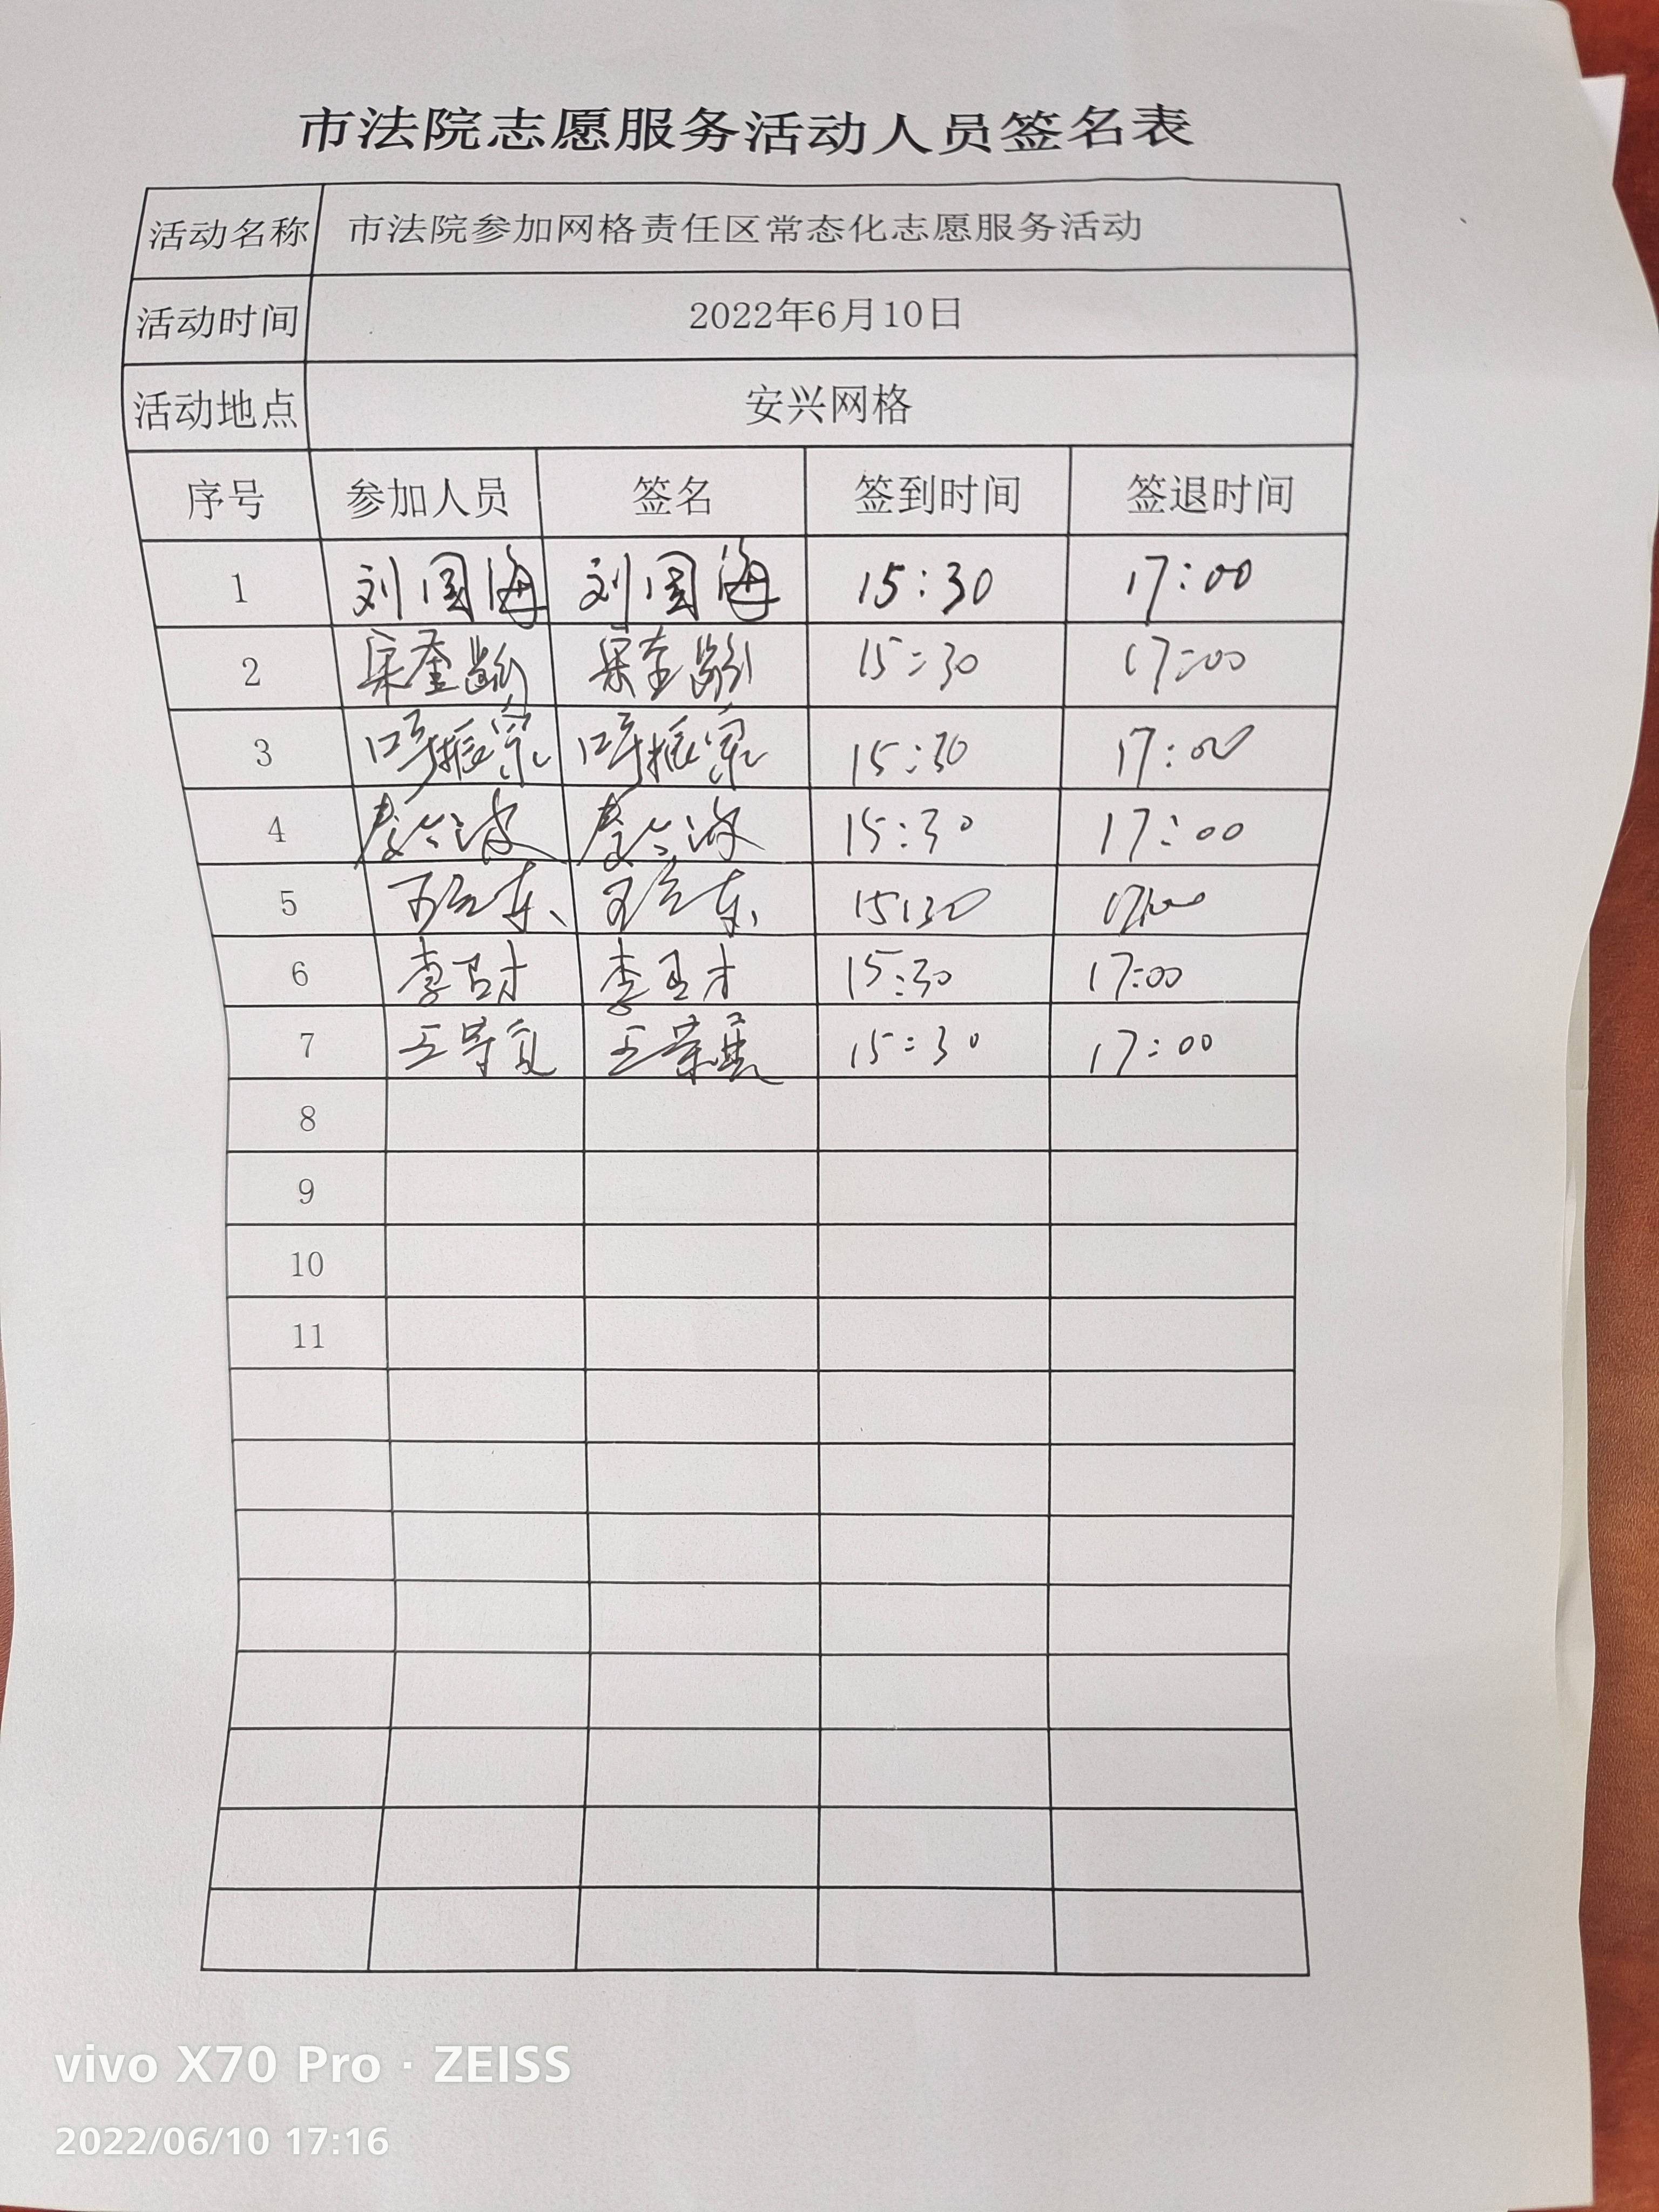 市法院志愿服务活动人员签名表
活动名称 市法院参加网格责任区常态化志愿服务活动
活动时间 2022年6月10日
活动地点 安兴网格
序号 参加人员 签名 签到时间 签退时间
1 刘国海 刘国海 15:30 17:00
2 15:30 17:00
3 15:30 17:00
4 15:30 17:00
5 15:30 17:00
6 15:30 17:00
7 15:30 17:00
8
9
10
11
vivo X70 Pro · ZEISS
2022/06/10 17:16